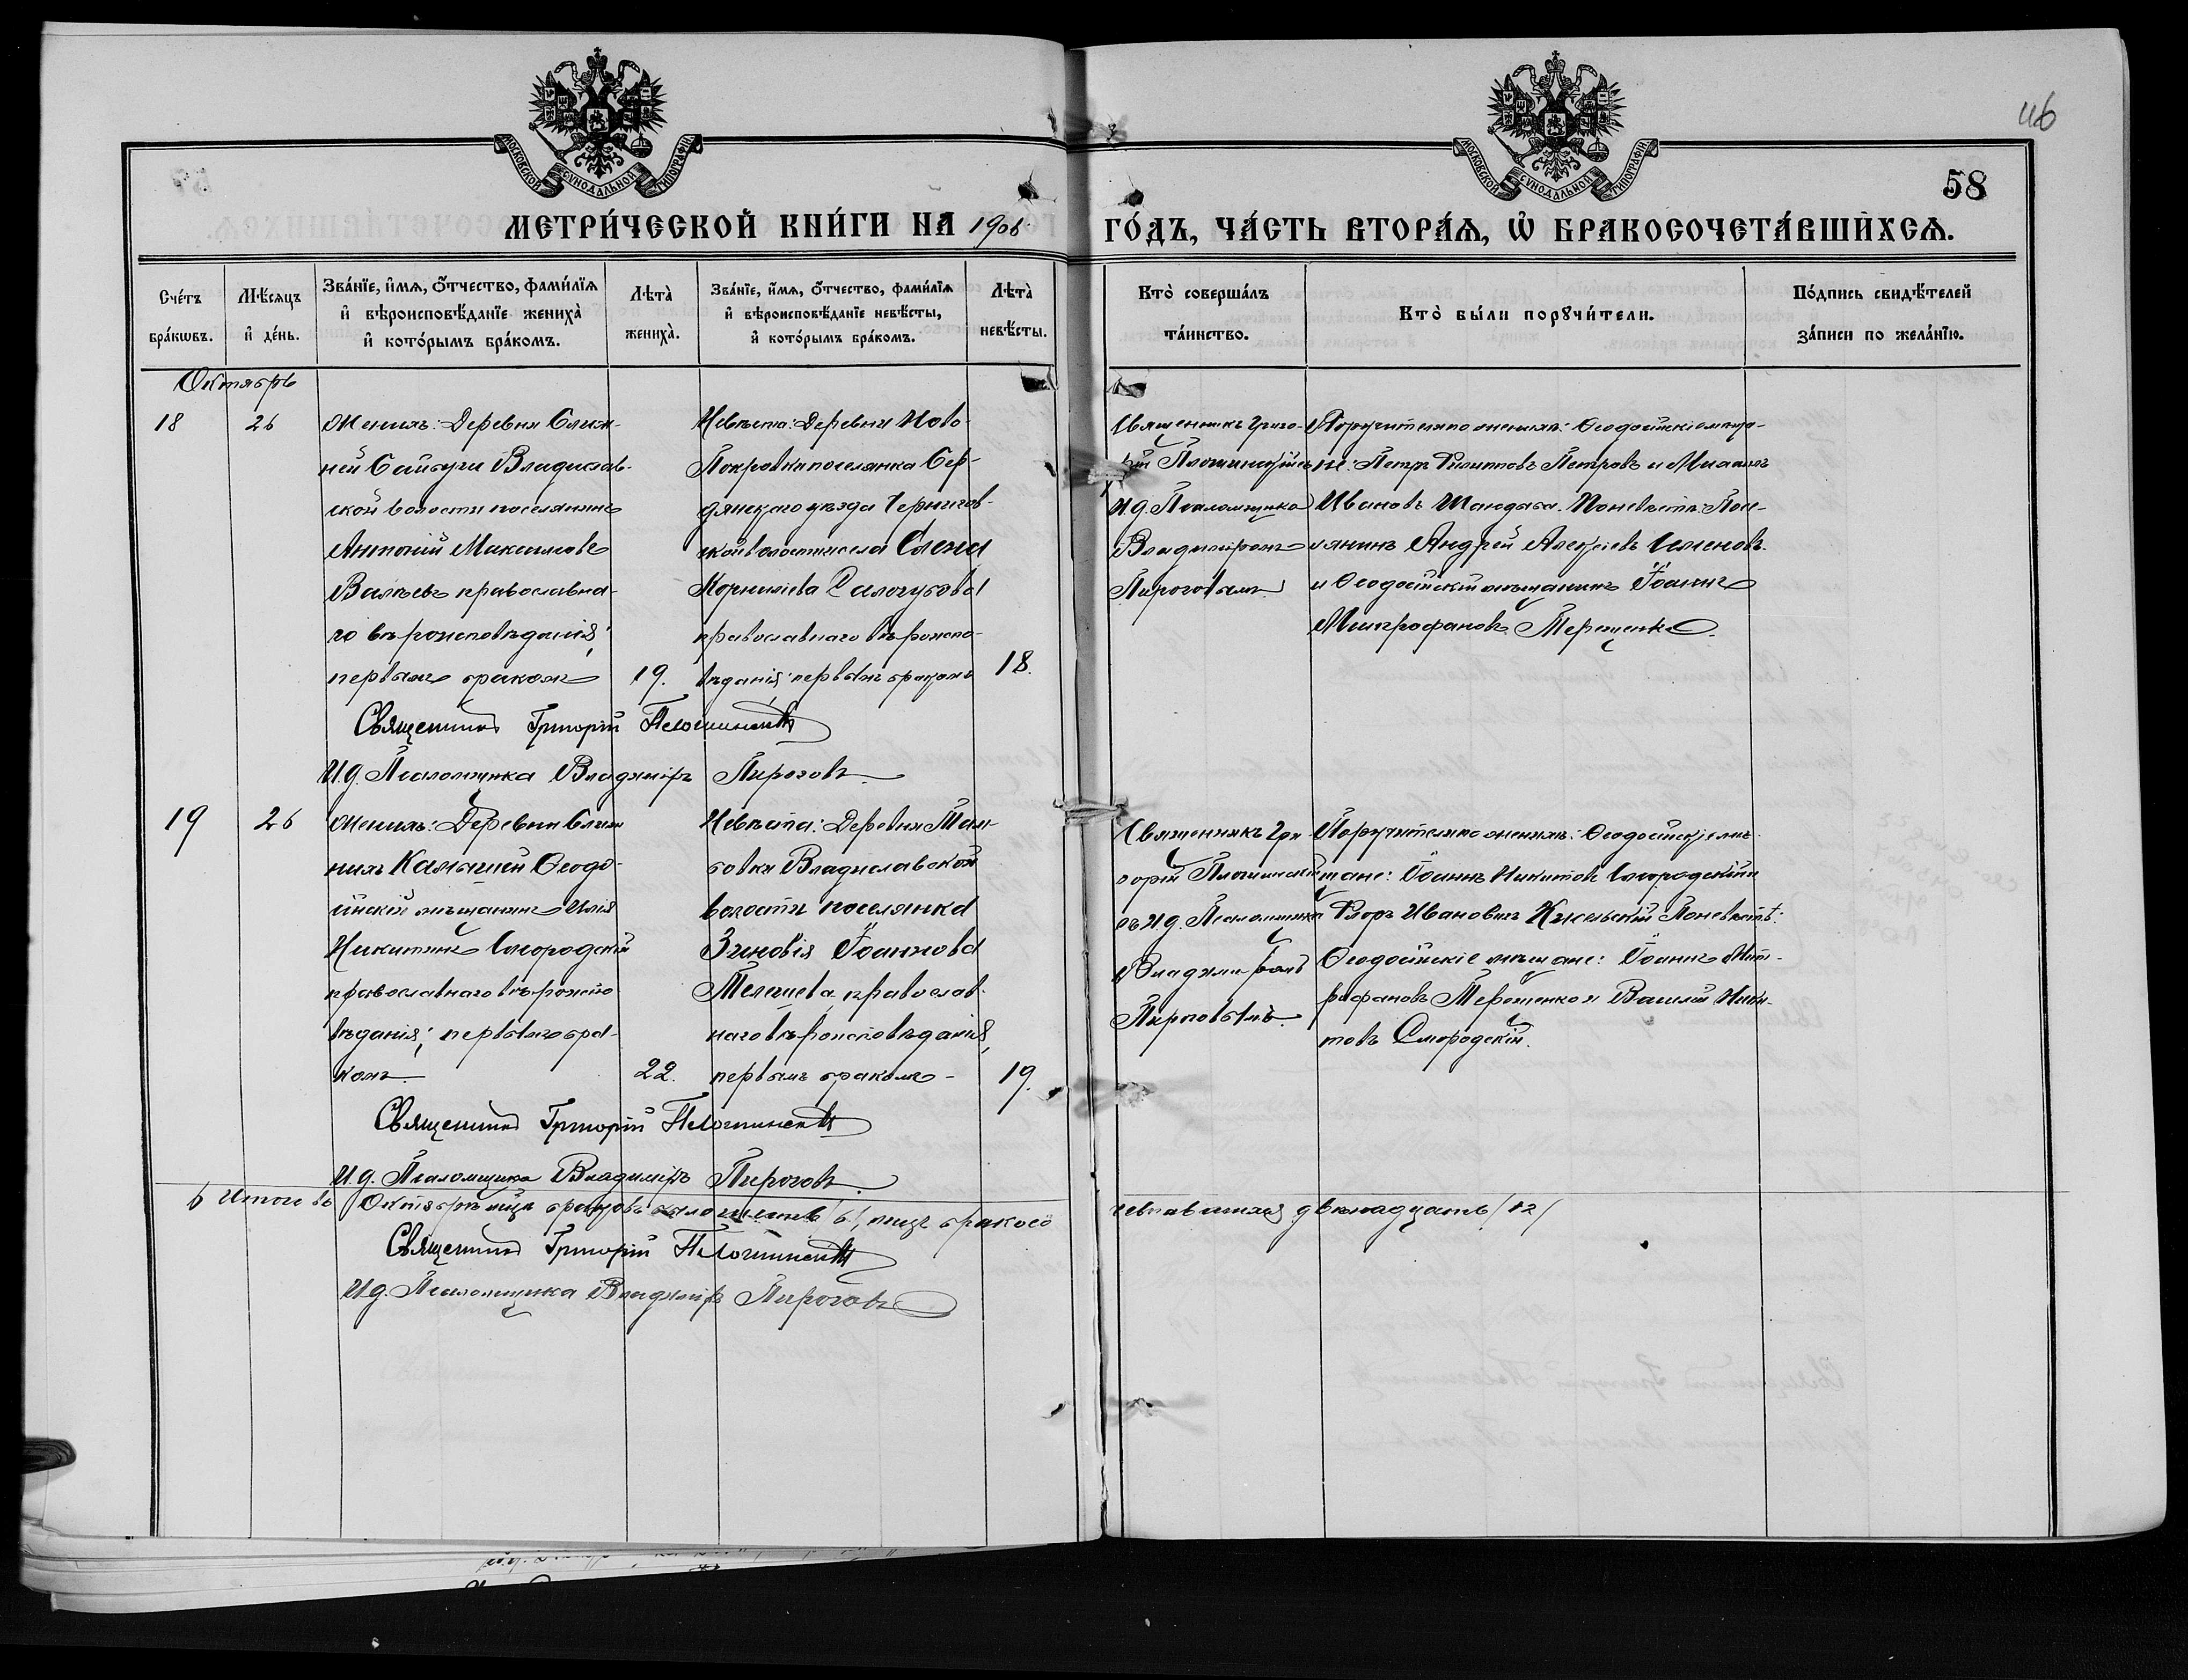 МОСКОВСКОЙ СѴНОДАЛЬНОЙ ТИПОГРАФІИ.
МОСКОВСКОЙ СѴНОДАЛЬНОЙ ТИПОГРАФІИ.
46
58
МЕТРИ́ЧЕСКОЙ КНИ́ГИ НА 1906
ГО́ДЪ, ЧА́СТЬ ВТОРА́Ѧ, Ѿ БРАКОСОЧЕТА́ВШИХСѦ.
Сче́тъ бра́кѡвъ.
Мѣ́сѧцъ и҆ де́нь.
Зва́нїе, и҆́мѧ, ѻ҆́тчество, фами́лїѧ и҆ вѣроисповѣ́данїе жениха̀ и҆ кото́рымъ бра́комъ.
Лѣта̀ жениха̀.
Зва́нїе, и҆́мѧ, ѻ҆́тчество, фами́лїѧ и҆ вѣроисповѣ́данїе невѣ́сты, и҆ кото́рымъ бра́комъ.
Лѣта̀ невѣ́сты.
Кто̀ соверша́лъ та́инство.
Кто̀ бы́ли порꙋчи́тели.
По́дпись свидѣ́телей за́писи по жела́нїю.
Октябрь
18
26
Женихъ: Деревни Ближ-
ней Байбуги Владислав-
ской волости поселянинъ
Антоній Максимовъ
православна-
го вѣроисповѣданія;
первымъ бракомъ
19.
Невѣста: Деревни Ново-
Покровки поселянка Бер-
дянскаго уѣзда Чернигов-
ской волости села Елена
Корниліева
православнаго вѣроиспо-
вѣданія; первымъ бракомъ
18.
Священникъ Григо-
рій Плошинскій съ
И.д. Псаломщика
Владиміромъ
Пироговымъ.
Поручители по женихѣ: Ѳеодосійскіе мѣща-
не: Петръ Филипповъ Петровъ и Михаилъ
Ивановъ Шандыба. По невѣстѣ: Посе-
лянинъ Андрей Алексіевъ Семеновъ
и Ѳеодосійскій мѣщанинъ Іоаннъ
Митрофановъ Терещенко.
Священникъ Григорій Плошинскій
И.д. Псаломщика Владиміръ Пироговъ.
19
26
Женихъ: Деревни Ближ
нихъ Камышей Ѳеодо-
сійскій мѣщанинъ Илія
Никитинъ Смородскій
православнаго вѣроиспо
вѣданія; первымъ бра-
комъ.
22.
Невѣста: Деревни Там-
бовки Владиславской
волости поселянка
Зиновія Іоаннова
Телегиева православ-
наго вѣроисповѣданія,
первымъ бракомъ
19.
Священникъ Гри
горій Плошинскій
съ и.д. Псаломщика
Владиміромъ
Пироговымъ.
Поручители по женихѣ: Ѳеодосійскіе мѣ-
щане: Іоаннъ Никитовъ Смородскій и
Флоръ Ивановичъ Кисельскій По невѣстѣ:
Ѳеодосійскіе мѣщане: Іоаннъ Мит-
рофановъ Терещенко и Василій Ники-
товъ Смородскій.
Священникъ Григорій Плошинскій
И.д. Псаломщика Владиміръ Пироговъ.
6 Итого въ Октябрѣ мцѣ браковъ было шесть /6/, лицъ бракосо
четавшихся двѣнадцать /12/
Священникъ Григорій Плошинскій
И.д. Псаломщика Владиміръ Пироговъ